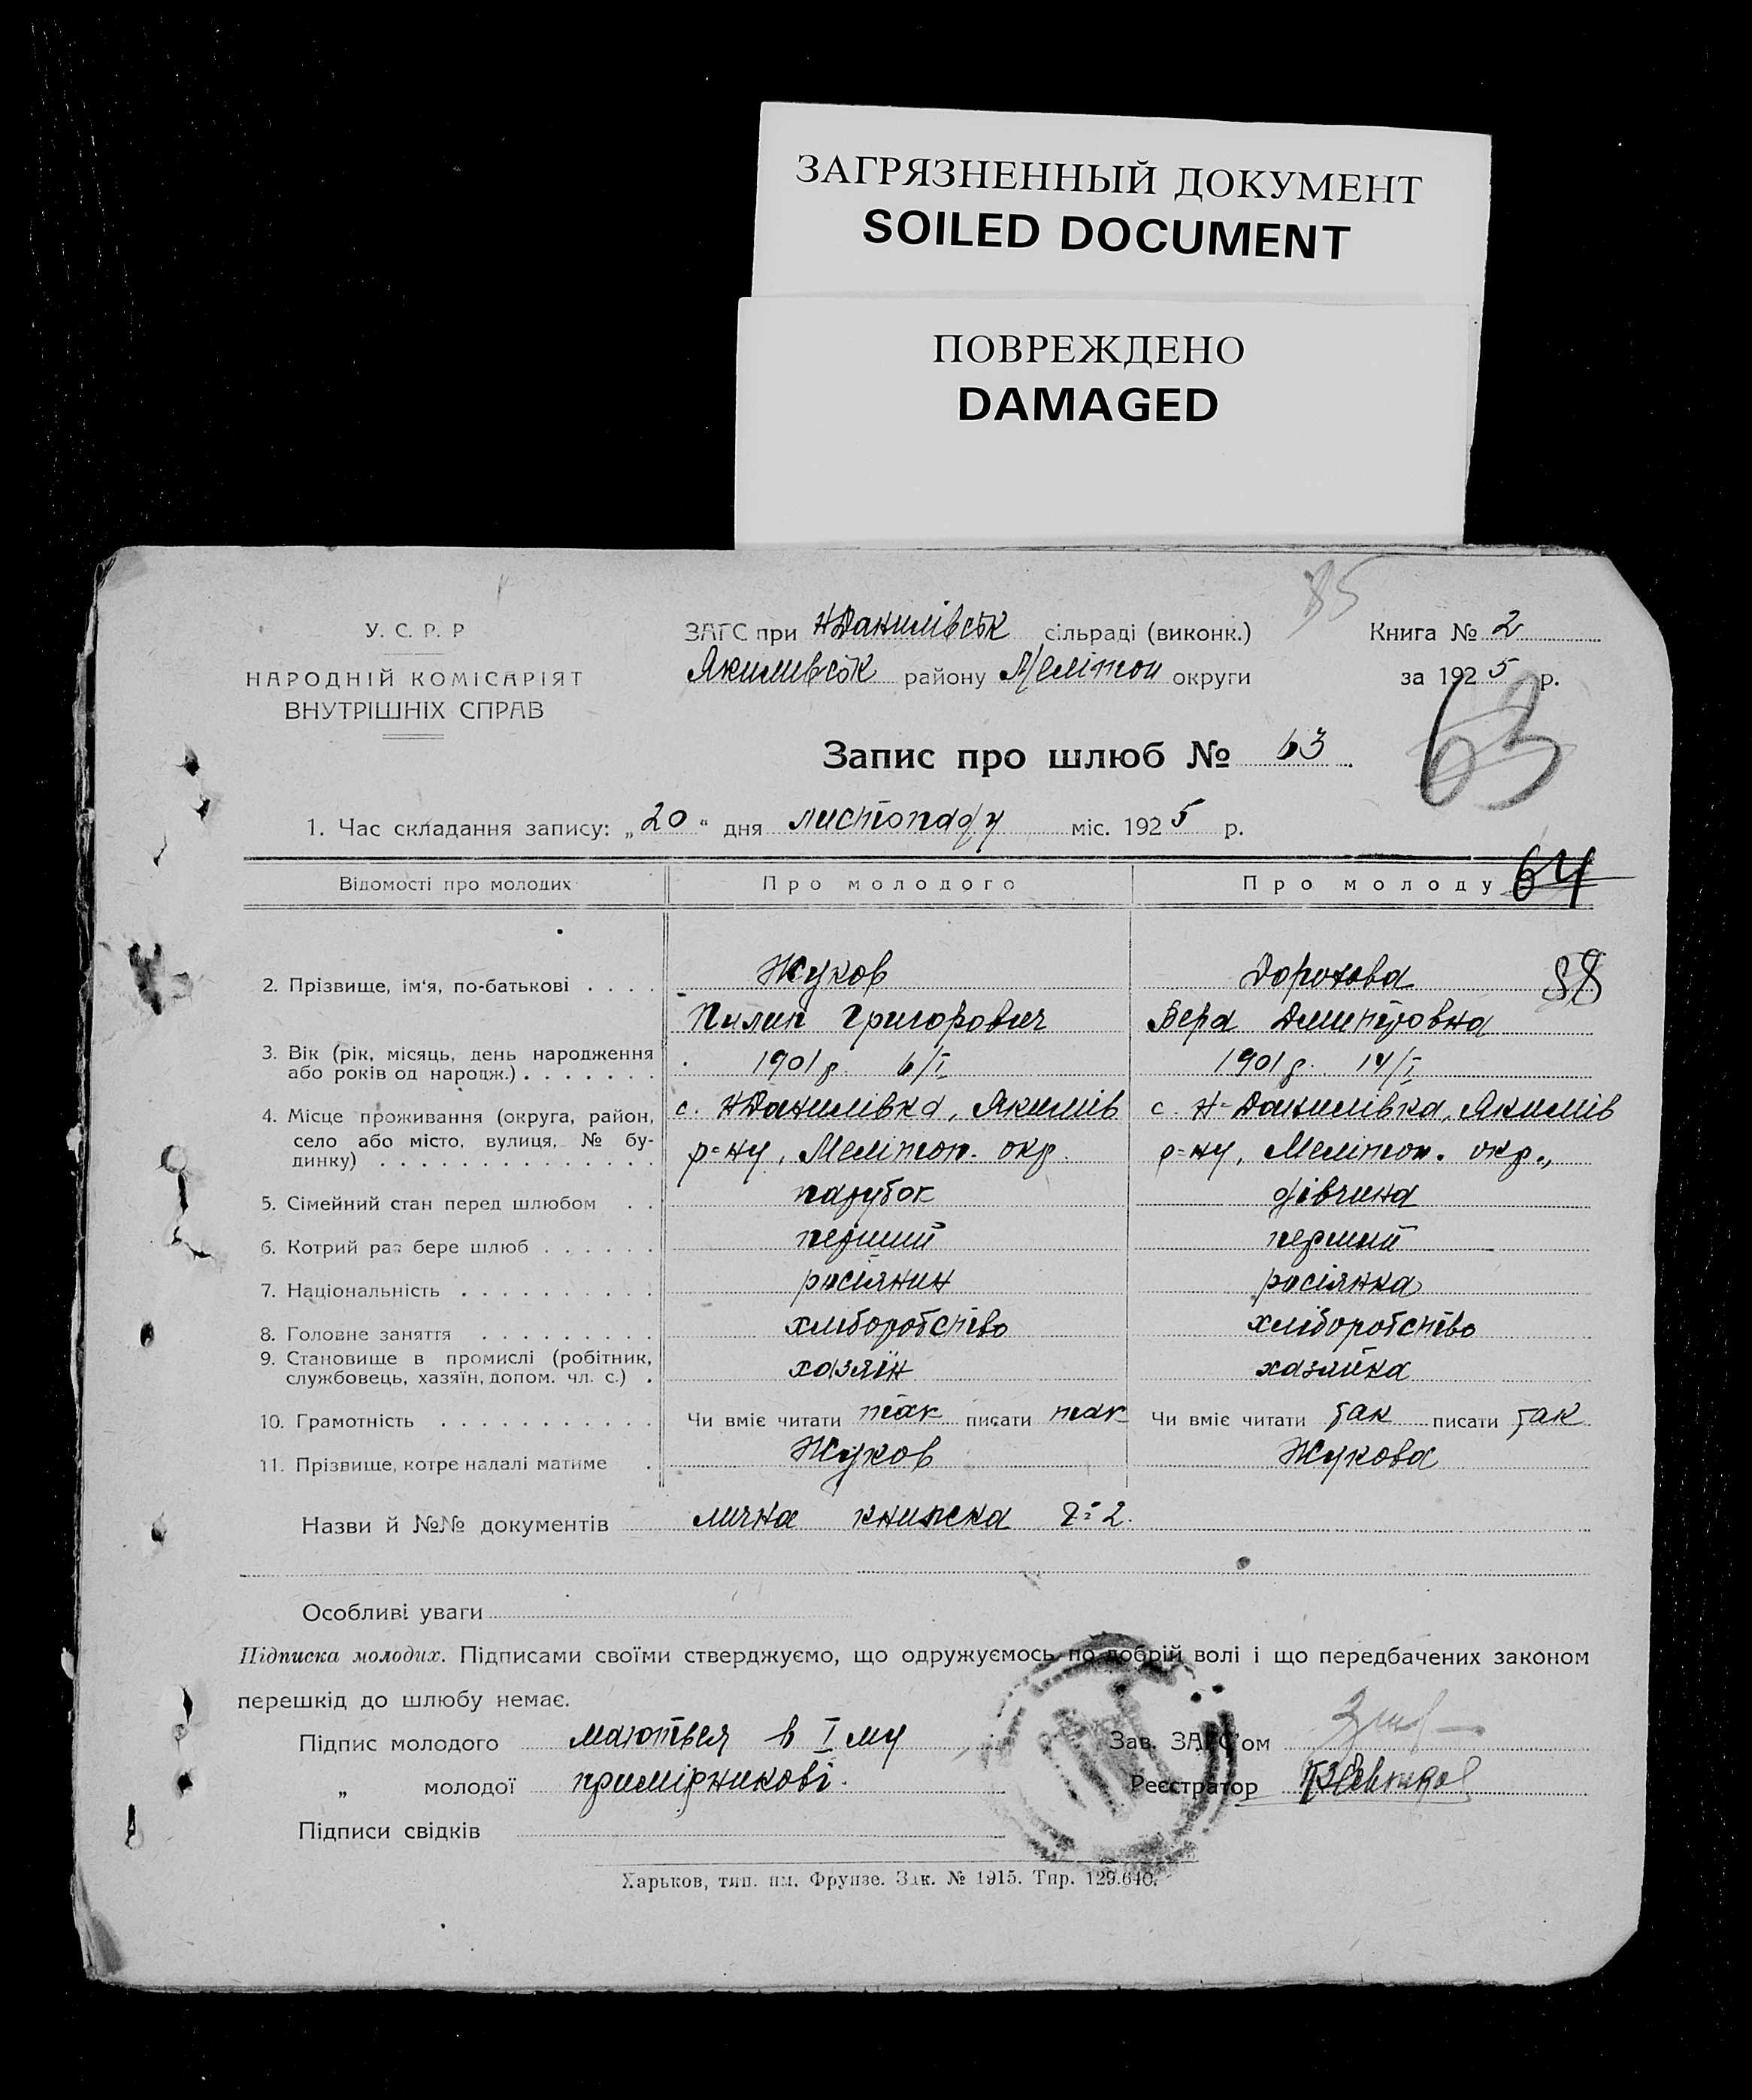 ЗАГРЯЗНЕННЫЙ ДОКУМЕНТ
SOILED DOCUMENT
ПОВРЕЖДЕНО
DAMAGED
85
У. С. Р. Р
НАРОДНІЙ КОМІСАРІЯТ
ВНУТРІШНІХ СПРАВ
ЗАГС при НДанилівськ сільраді (виконк.)
Якимивськ району Мелітоп округи
Книга № 2
за 1925 р.
63
Запис про шлюб № 63
1. Час складання запису: „20“ дня листопаду міс. 1925 р.
Відомості про молодих Про молодого Про молоду 64
88
2. Прізвище, ім‘я, по-батькові . . . . Жуков
Пилип Григорович
Вера Дмитровна
3. Вік (рік, місяць, день народження або років од народж.) . . . . . . . 1901 р. 6/I 1901 р. 14/I
4. Місце проживання (округа, район, село або місто, вулиця, № будинку) . . . . . . . . . . . . . .
с. НДанилівка, Якимів
р=ну, Мелітоп. окр.
с. Н=Данилівка, Якимів
р=ну, Мелітоп. окр.,
5. Сімейний стан перед шлюбом . . парубок дівчина
6. Котрий раз бере шлюб . . . . . . перший перший
7. Національність . . . . . . . . . . росіянин росіянка
8. Головне заняття . . . . . . . . . хліборобство хліборобство
9. Становище в промислі (робітник, службовець, хазяїн, допом. чл. с.) . хазяїн хазяйка
10. Грамотність . . . . . . . . . . . Чи вміє читати так писати так Чи вміє читати так писати так
11. Прізвище, котре надалі матиме . Жуков Жукова
Назви й №№ документів лична книжка 2
Особливі уваги
Підписка молодих. Підписами своїми стверджуємо, що одружуємось по добрій волі і що передбачених законом
перешкід до шлюбу немає.
Підпис молодого маються в I му
„ молодої примірникові.
Підписи свідків
Зав. ЗАГС‘ом
Реєстратор
Харьков, тип. им. Фрунзе. Зак. № 1915. Тир. 129.640.